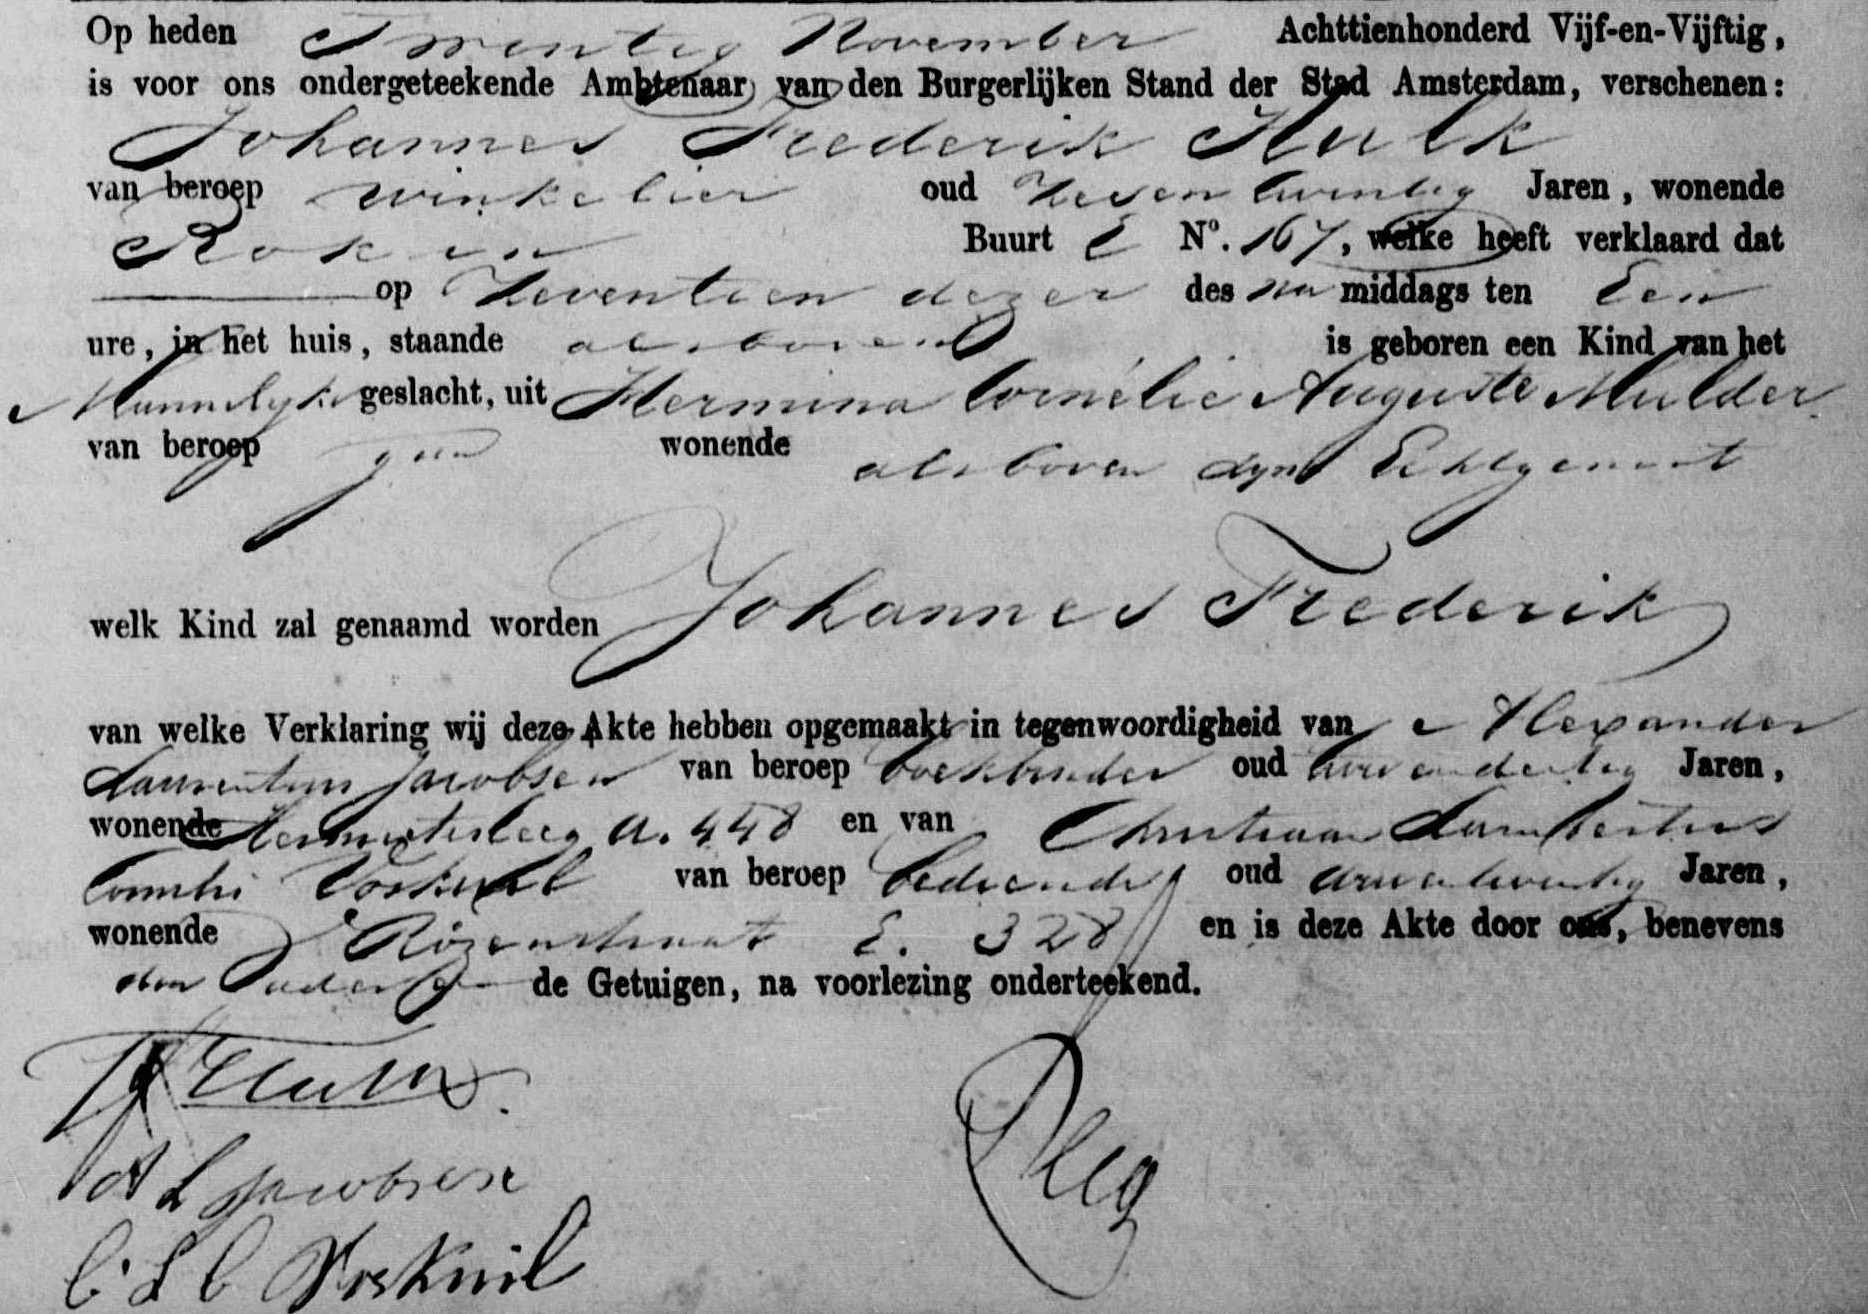 Op heden Twintig November Achttienhonderd Vijf-en-Vijftig,
is voor ons ondergeteekende Ambtenaar van den Burgerlijken Stand der Stad Amsterdam, verschenen:
Johannes Frederik Hulk
van beroep winkelier oud Zesentwintig Jaren, wonende
Rokin Buurt E No. 167, welke heeft verklaard dat
op Zeventien dezer des na middags ten Een
ure, in het huis, staande alsboven is geboren een Kind van het
Mannelyk geslacht, uit Hermina Cornélie Auguste Mulder
van beroep geen wonende alsboven zyne Echtgenoot
welk Kind zal genaamd worden Johannes Frederik
van welke Verklaring wij deze Akte hebben opgemaakt in tegenwoordigheid van Alexander
Laurentius Jacobsen van beroep boekbinder oud tweendertig Jaren,
wonende A. 448 en van Christiaan Lambertus
Voskuil van beroep bediende oud drieentwintig Jaren,
wonende Rozenstraat E. 328 en is deze Akte door ons, benevens
den Vader en de Getuigen, na voorlezing onderteekend.
JFHulk.
A L Jacobsen
C. L C Voskuil